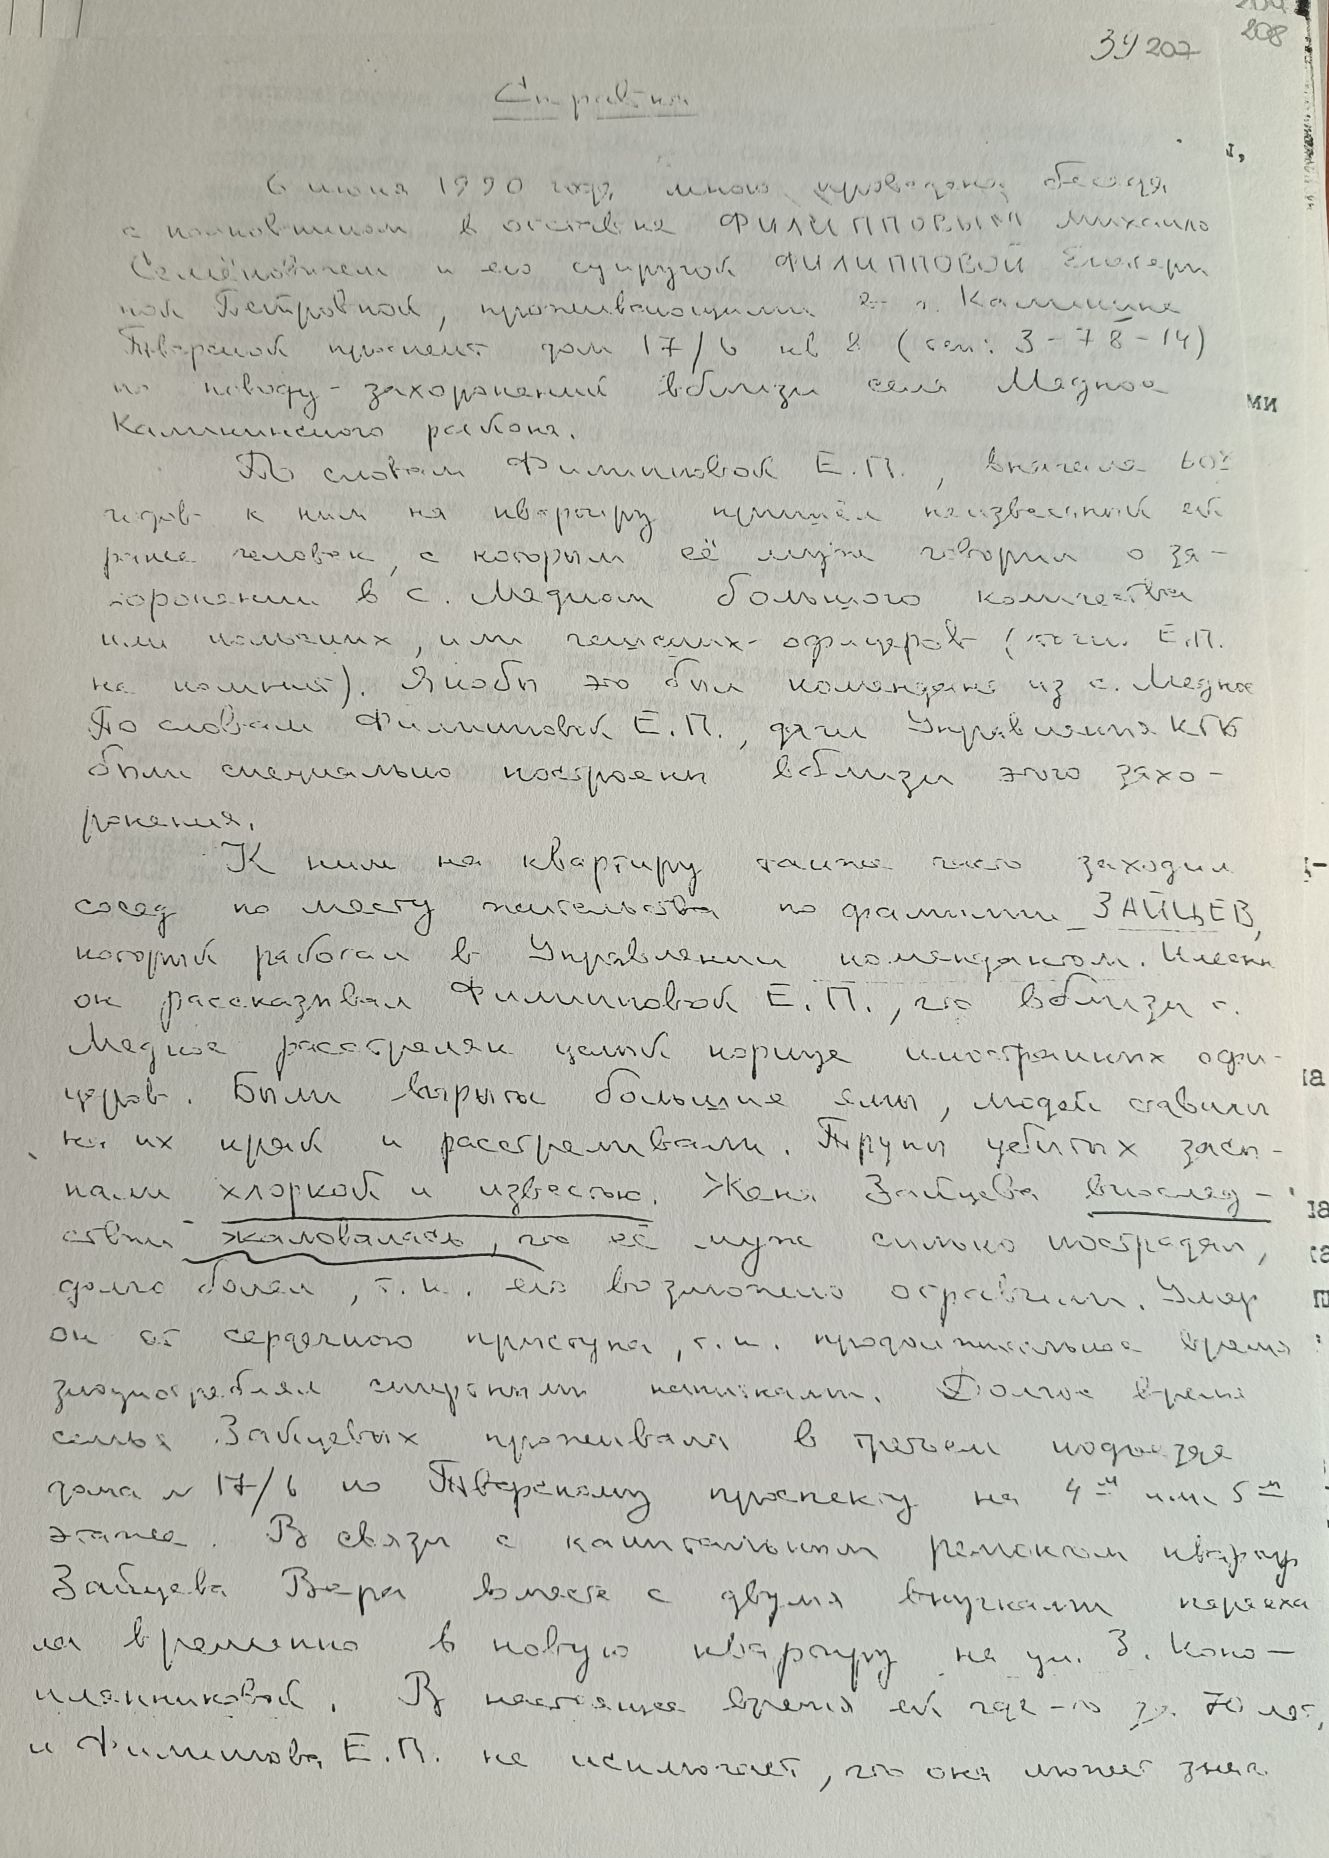 208
39 207
Справка
6 июня 1990 года мною проведена беседа
с полковником в отставке ФИЛИППОВЫМ Михаилом
Семёновичем и его супругой ФИЛИППОВОЙ Екатери
ной Петровной, проживающими в г. Калинине
Тверской проспект дом 17/6 кв 2 (тел: 3-78-14)
по поводу захоронений вблизи села Медное
Калининского района.
По словам Филипповой Е.П., вначале 60х
годов к ним на квартиру пришёл неизвестный ей
ранее человек, с которым её муж говорил о за-
хоронении в с. Медном большого количества
или польских, или чешских офицеров (точн. Е.П.
не помнит). Якобы это был комендант из с. Медное
По словам Филипповой Е.П., дачи Управления КГБ
были специально построены вблизи этого захо-
ронения.
К ним на квартиру также часто заходил
сосед по месту жительства по фамилии ЗАЙЦЕВ,
который работал в Управлении комендантом. Именно
он рассказывал Филипповой Е.П., что вблизи с.
Медное расстрелян целый корпус иностранных офи-
церов. Были вырыты большие ямы, людей ставили
на их край и расстреливали. Трупы убитых засы-
пали хлоркой и известью. Жена Зайцева впослед-
ствии жаловалась, что её муж сильно пострадал,
долго болел, т.к. его возможно отравили. Умер
он от сердечного приступа, т.к. продолжительное время
злоупотреблял спиртными напитками. Долгое время
семья Зайцевых проживала в третьем подъезде
дома N 17/6 по Тверскому проспекту на 4м или 5м
этаже. В связи с капитальным ремонтом квартир
Зайцева Вера вместе с двумя внучками перееха
ла временно в новую квартиру на ул. З. Коно-
плянниковой. В настоящее время ей где-то за 70 лет,
и Филиппова Е.П. не исключает, что она может знать